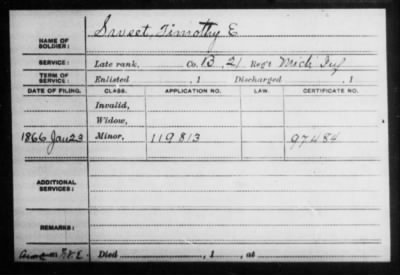 NAME OF SOLDIER: Sweet, Timothy E
SERVICE: Late rank, Co. B, 21 Reg't Mich Inf
TERM OF SERVICE: Enlisted , 1 Discharged , 1
DATE OF FILING. CLASS. APPLICATION NO. LAW. CERTIFICATE NO.
Invalid,
Widow,
1866 Jan 23 Minor, 119813 97484
ADDITIONAL SERVICES:
REMARKS:
Died , 1 , at